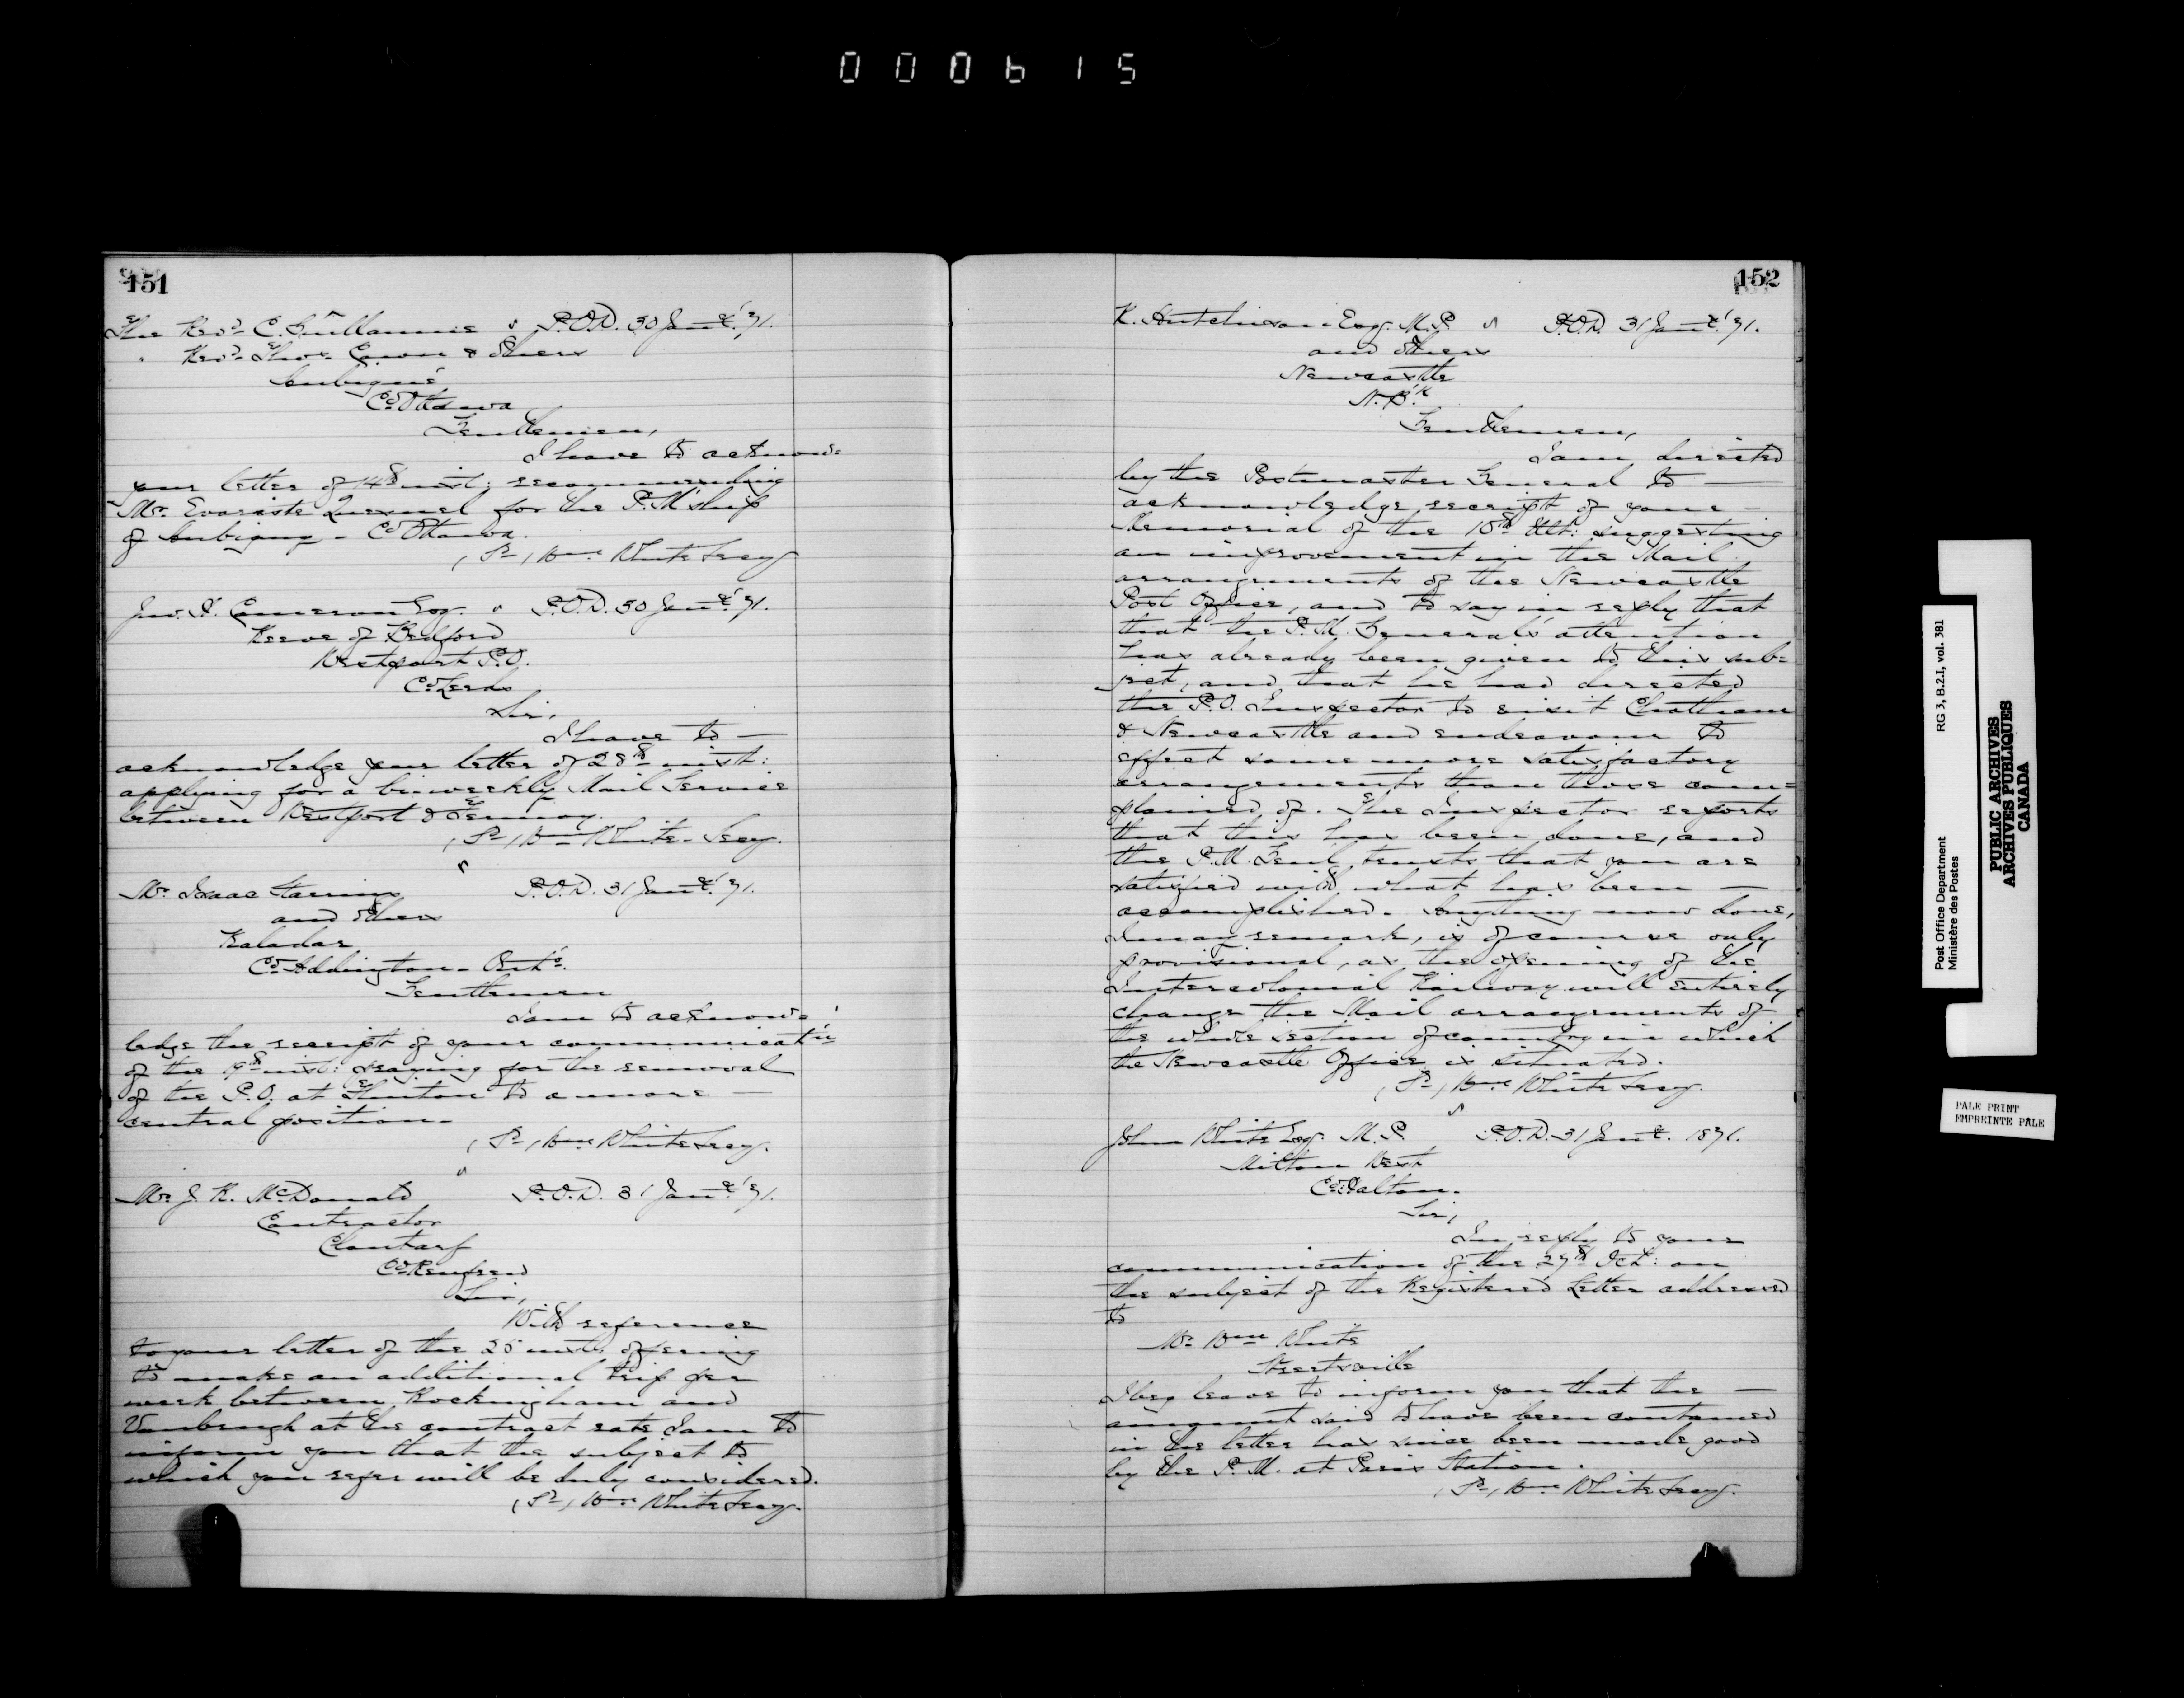 000615
151
The Revd. C. Guillaume & P.O.D. 30 Jany. '71.
" Revd. Thos. & others
Aubigné
Co. Ottawa
Gentlemen,
I have to acknow.
your letter of 14th inst: recommending
Mr. Evariste Quesnel for the P.M'ship
of Aubigny - Co. Ottawa.
(Sd) Wm White Secy
Jno. A. Cameron Esq. P.O.D. 30 Jany. '71.
Reeve of Bedford
Westport P.O.
Co. Leeds
Sir,
I have to —
acknowledge your letter of 28th inst:
applying for a bi-weekly Mail Service
between Westport &
(Sd) Wm White - Secy.
Mr. Isaac P.O.D. 31 Jany. '71.
and others
Kaladar
Co. Addington - Onto.
Gentlemen
I am to acknow=
ledge the receipt of your communicatn
of the 9th inst: praying for the removal
of the P.O. at Flinton to a more —
central position.
(Sd) Wm White Secy.
Mr. J. R. McDonald P.O.D. 31 Jany. '71.
Contractor
Clontarf
Co. Renfrew
Sir,
With reference
to your letter of the 25 inst: offering
to make an additional trip per
week between Rockingham and
Vanbrugh at the contract rate I am to
inform you that the subject to
which you refer will be duly considered.
(Sd) Wm White Secy.
152
R. Hutchison Esq. M.P. P.O.D. 31 Jany. '71.
and others
Newcastle
N.B'k
Gentlemen,
I am directed
by the Postmaster General to —
acknowledge receipt of your —
Memorial of the 18th Ult: suggesting
an improvement in the Mail
arrangements of the Newcastle
Post Office, and to say in reply that
that the P.M. General's attention
has already been given to this sub=
ject, and that he had directed
the P.O. Inspector to visit Chatham
& Newcastle and endeavour to
effect some more satisfactory
arrangements than those com=
plained of. The Inspector reports
that this has been done, and
the P.M. Genl. trusts that you are
satisfied with what has been —
accomplished. Anything now done,
I may remark, is of course only
provisional, as the opening of the
Intercolonial Railway will entirely
change the Mail arrangements of
the whole section of country in which
the Newcastle Office is situated.
(Sd) Wm White Secy.
John White Esq. M.P. P.O.D. 31 Jany. 1871.
Milton West
Co. Halton.
Sir,
In reply to your
communication of the 27th Oct: on
the subject of the Registered Letter addressed
to
Mr. Wm White
Streetsville
I beg leave to inform you that the —
amount said to have been contained
in the letter has since been made good
by the P.M. at Paris Station.
(Sd) Wm White Secy.
Post Office Department RG 3, B.2.I, vol. 381
Ministère des Postes
PUBLIC ARCHIVES
ARCHIVES PUBLIQUES
CANADA
PALE PRINT
EMPREINTE PALE